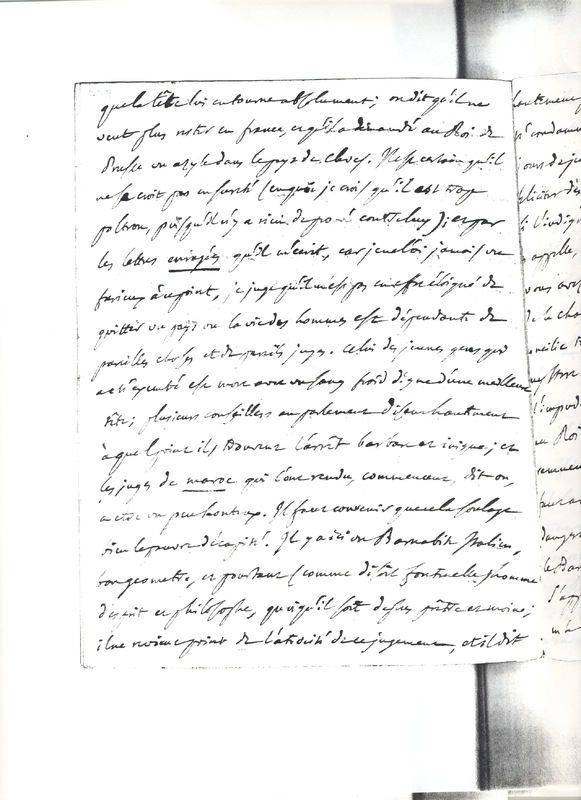 que la tête lui en tourne absolument; on dit qu'il ne
veut plus rester en france, et qu'il a demandé au Roi de
Prusse un azyle dans le pays de Cleves. Il est certain qu'il
ne se croit pas en sureté (en quoi je crois qu'il est trop
poltron, puisqu'il n'y a rien de prouvé contre luy); et par
les lettres enragées qu'il m'écrit, car je ne l'ai jamais vu
furieux à ce point, je juge qu'il n'est pas en effet éloigné de
quitter un pays où la vie des hommes est dépendante de
pareilles choses et de pareils juges. Celui des jeunes gens qui
a été executé est mort avec un sang froid digne d'une meilleure
tête; plusieurs conseillers au parlement disent hautement
à quel point ils trouvent l'arrêt barbare et inique; et
les juges de maroc qui l'ont rendu, commencent, dit on,
a etre un peu honteux. Il faut convenir que cela soulage
bien le pauvre décapité. Il y a ici un Barnabite Italien,
bon geometre, et pourtant (comme disoit fontenelle) homme
d'esprit et philosophe, quoiqu'il soit de plus prêtre et moine;
il ne revient point de l'atrocité de ce jugement, et il dit